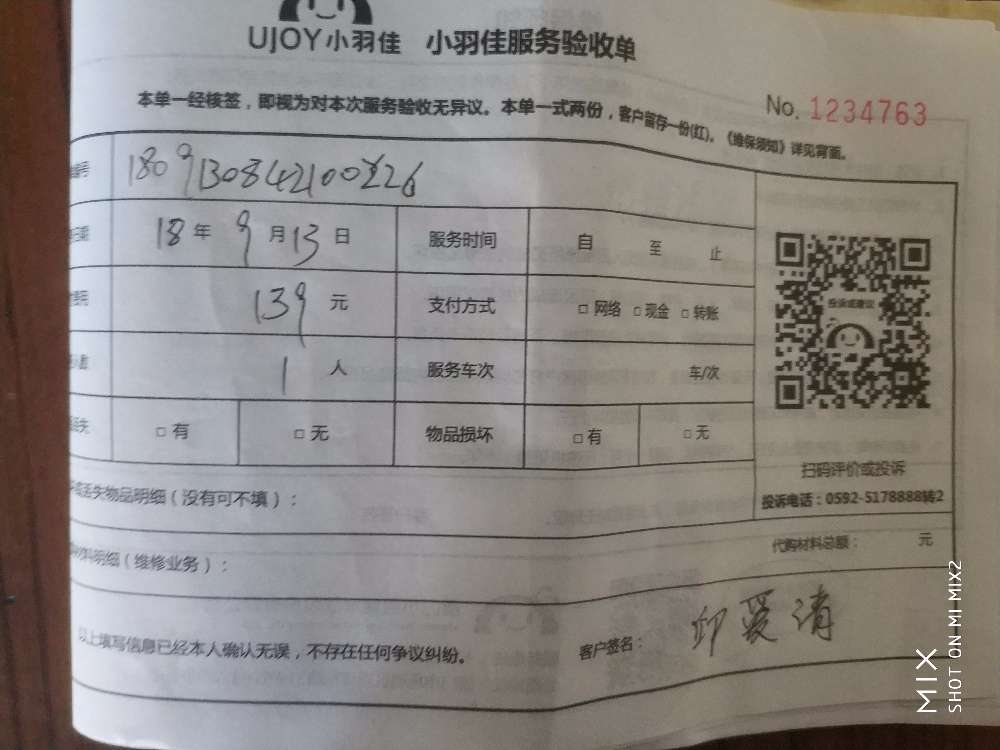 UJOY小羽佳 小羽佳服务验收单
本单一经核签，即视为对本次服务验收无异议。本单一式两份，客户留存一份(红)。《维保须知》详见背面。
No. 1234763
编号
18 年 9 月 13 日 服务时间 自 至 止
费用 139 元 支付方式 □ 网络 □ 现金 □ 转账
人数 1 人 服务车次 车/次
丢失 □ 有 □ 无 物品损坏 □ 有 □ 无
投诉或建议
扫码评价或投诉
投诉电话：0592-5178888转2
丢失物品明细（没有可不填）：
材料明细（维修业务）： 代购材料总额： 元
以上填写信息已经本人确认无误，不存在任何争议纠纷。 客户签名： 邱爱清
MIX
SHOT ON MI MIX2